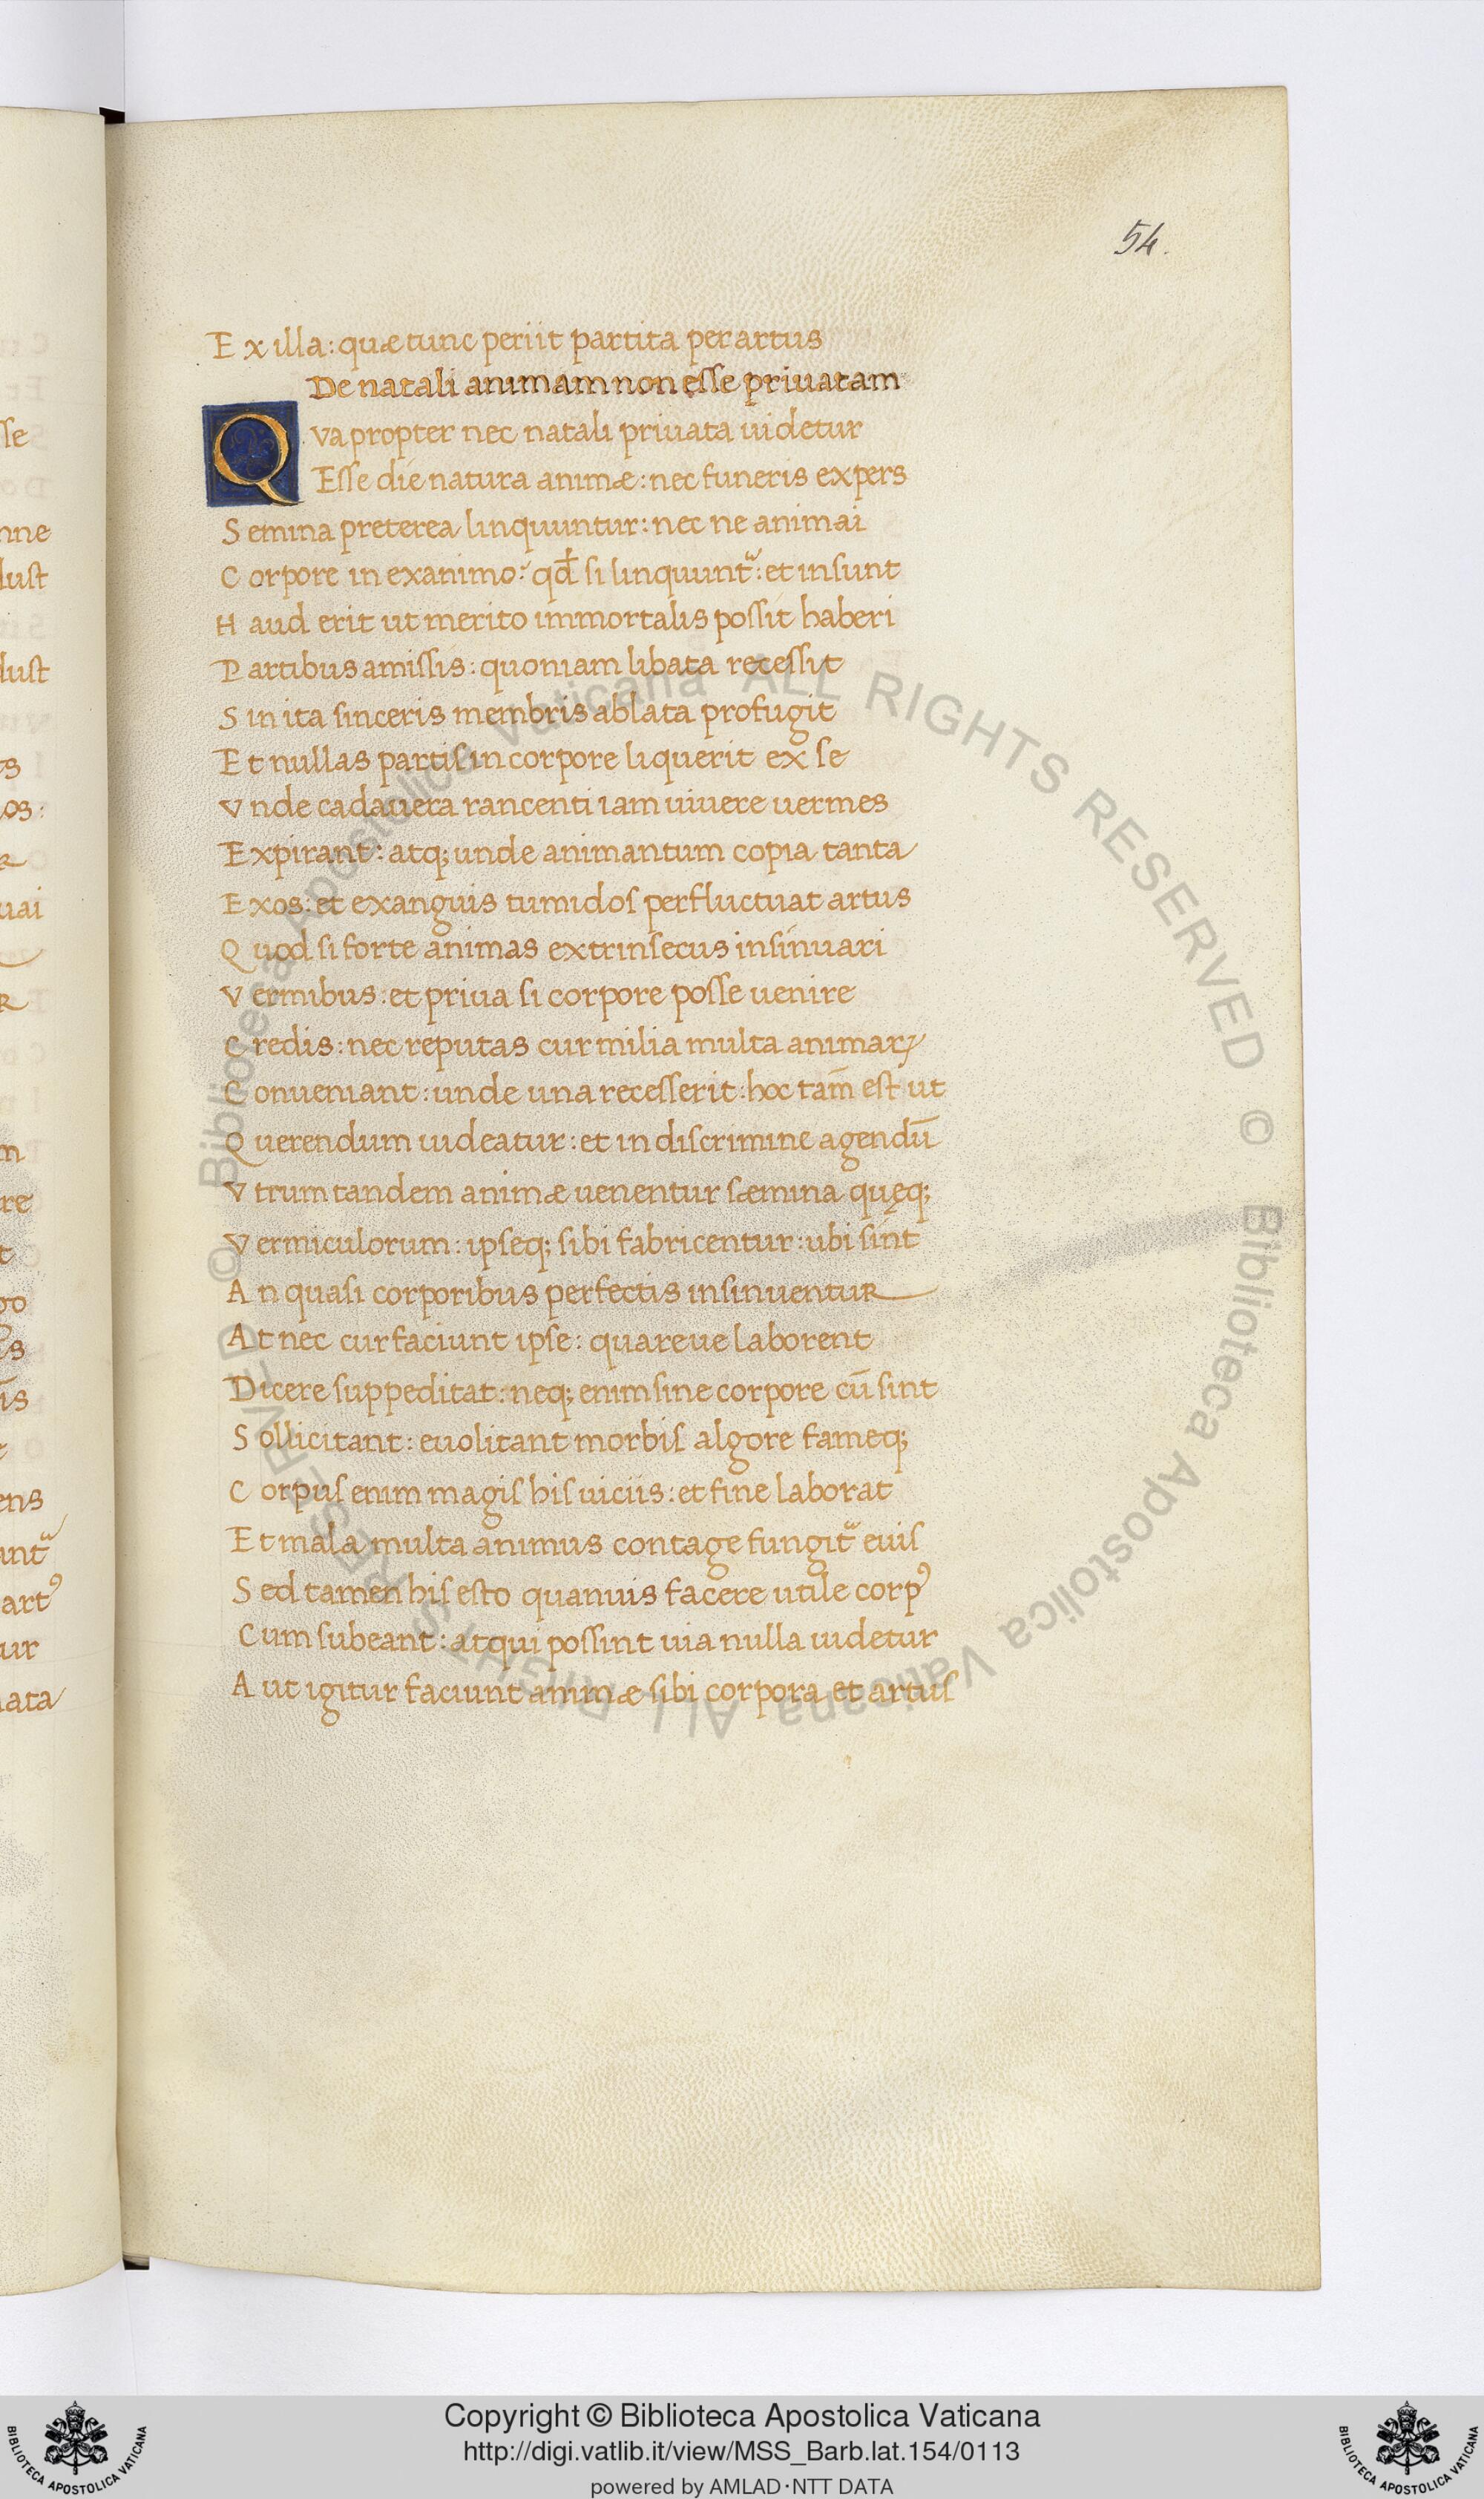 54.
Ex illa: quæ tunc periit partita per artus
De natali animam non esse priuatam
Qvapropter nec natali priuata uidetur
Esse die natura animæ: nec funeris expers
Semina preterea linquuntur: nec ne animai
Corpore in exanimo? qđ si linquunt᷑: et insunt
Haud erit ut merito immortalis possit haberi
Partibus amissis: quoniam libata recessit
Sin ita sinceris membris ablata profugit
Et nullas partis in corpore liquerit ex se
Vnde cadauera rancenti iam uiuere uermes
Expirant: atq; unde animantum copia tanta
Exos: et exanguis tumidos perfluctuat artus
Quod si forte animas extrinsecus insinuari
Vermibus: et priua si corpore posse uenire
Credis: nec reputas cur milia multa animaꝝ
Conueniant: unde una recesserit: hoc tam̄ est ut
Querendum uideatur: et in discrimine agendū
Vtrum tandem animæ uenentur sæmina quęq;
Vermiculorum: ipseq; sibi fabricentur: ubi sint
An quasi corporibus perfectis insinuentur
At nec cur faciunt ipse: quareue laborent
Dicere suppeditat: neq; enim sine corpore cū sint
Sollicitant: euolitant morbis algore fameq;
Corpus enim magis his uiciis: et fine laborat
Et mala multa animus contage fungit᷑ euis
Sed tamen his esto quanuis facere utile corpꝰ
Cum subeant: atqui possint uia nulla uidetur
Aut igitur faciunt animæ sibi corpora et artus
© Biblioteca Apostolica Vaticana ALL RIGHTS RESERVED © Biblioteca Apostolica Vaticana ALL RIGHTS RESERVED
Copyright © Biblioteca Apostolica Vaticana
http://digi.vatlib.it/view/MSS_Barb.lat.154/0113
powered by AMLAD·NTT DATA
BIBLIOTECA APOSTOLICA VATICANA
BIBLIOTECA APOSTOLICA VATICANA